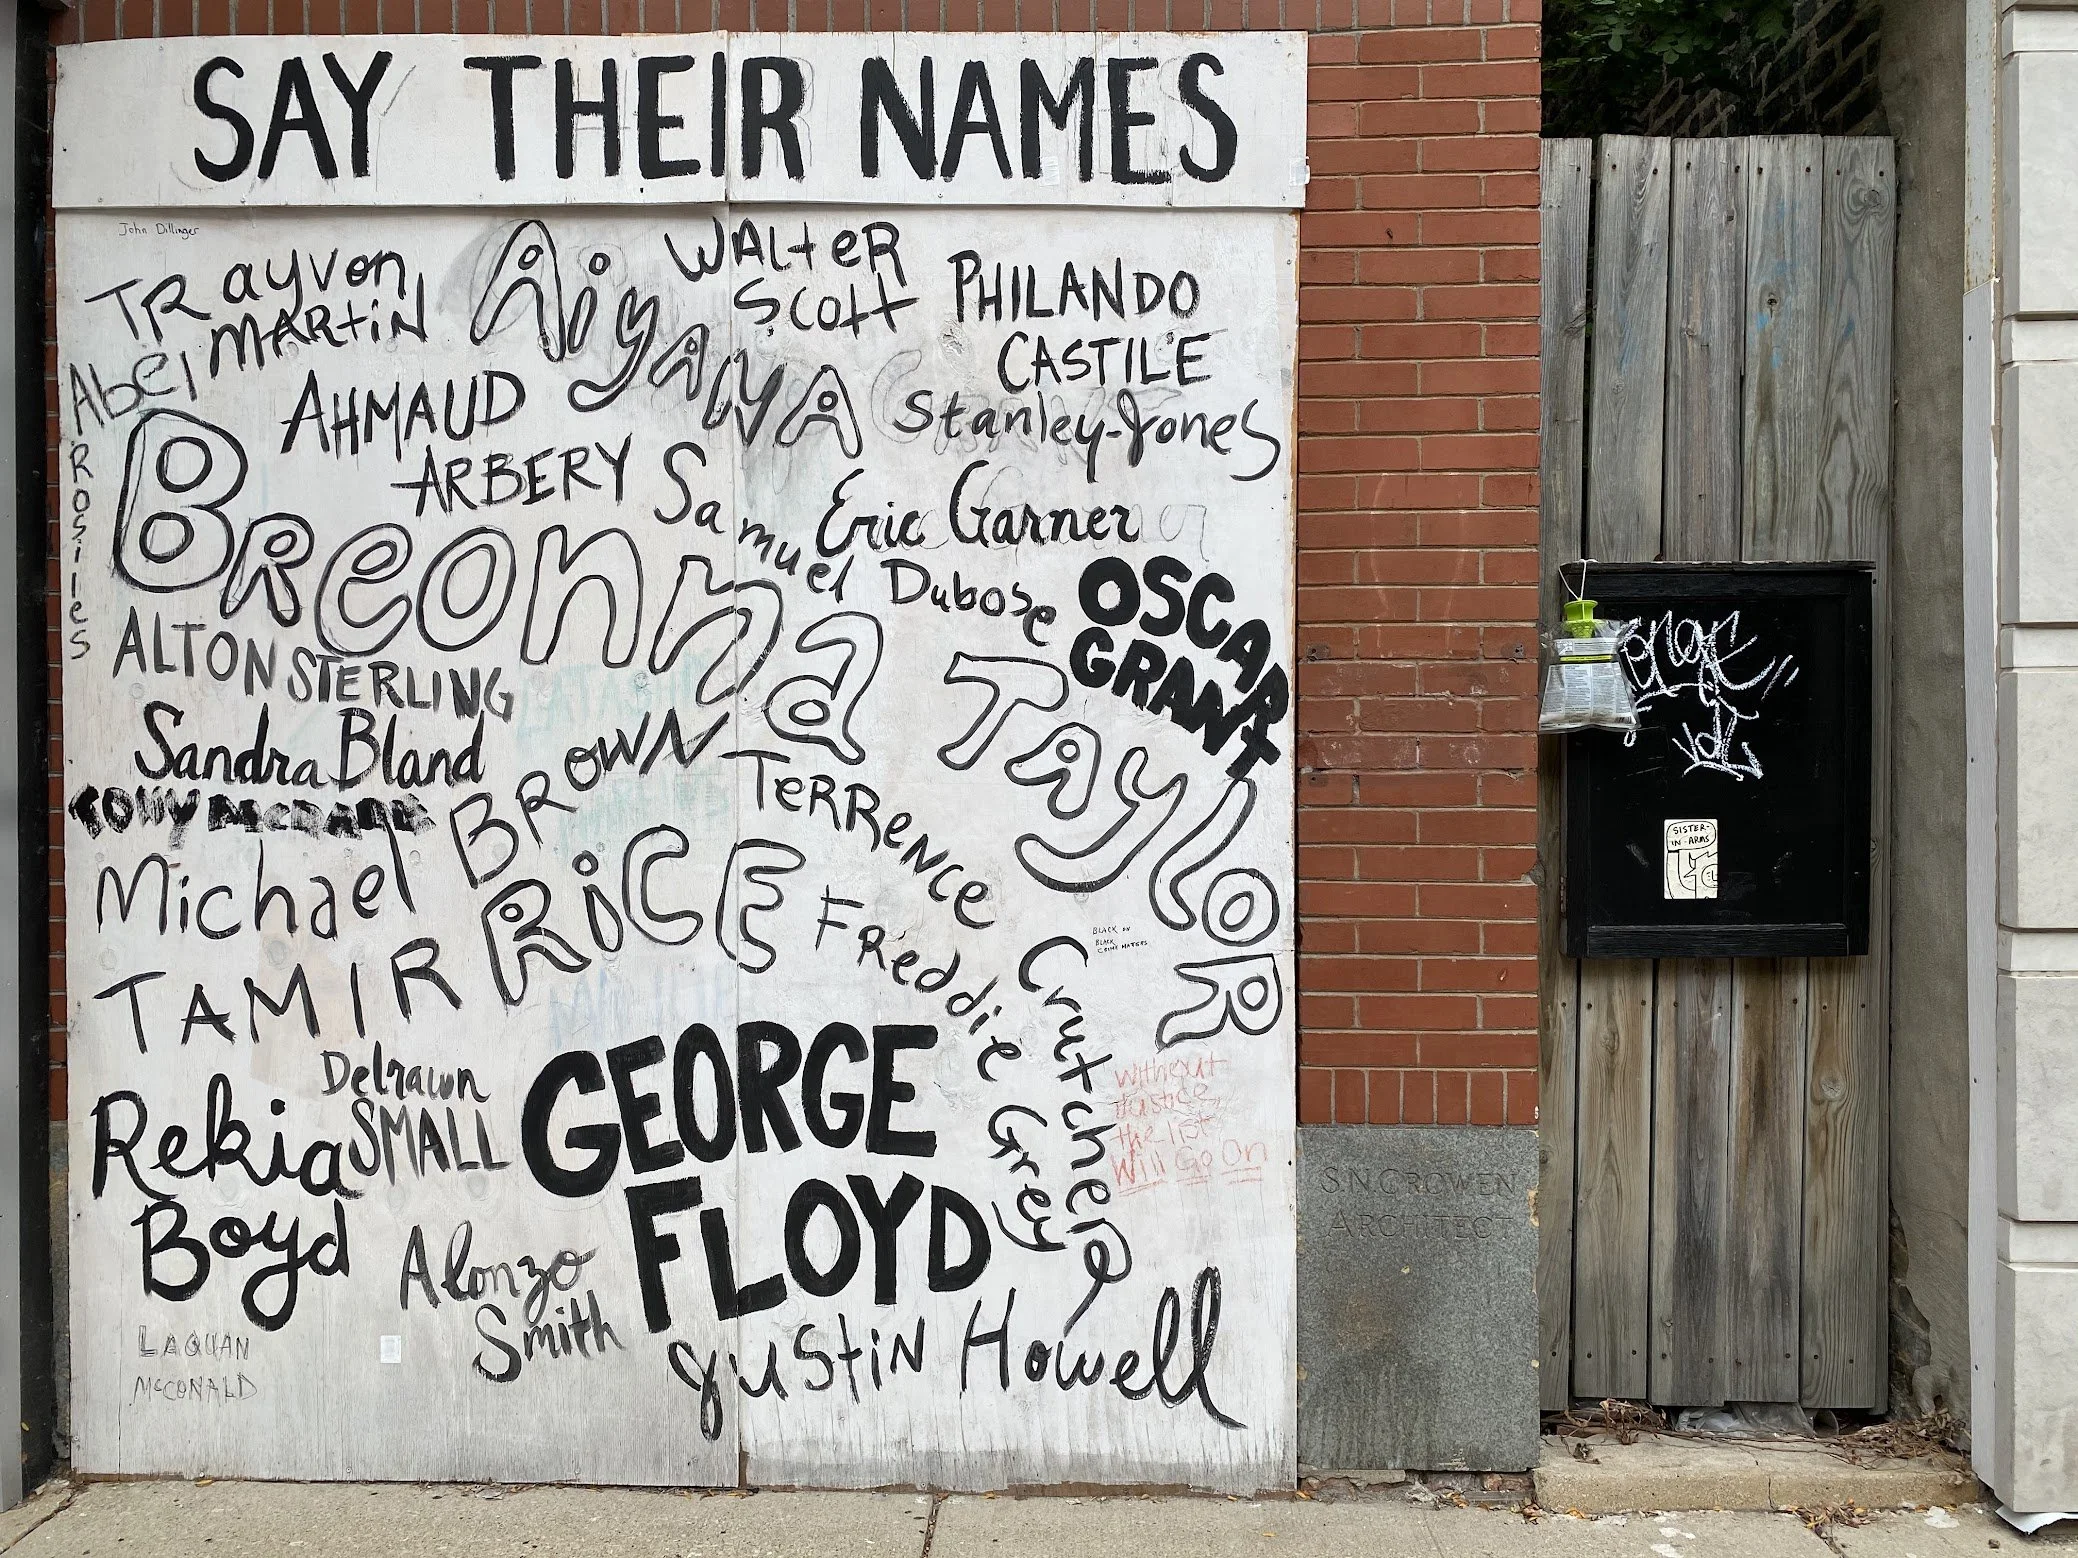 SAY THEIR NAMES
John Dillinger
TRayvon
MARtiN
Aiyana
Stanley-Jones
WALteR
Scott
PHILANDO
CASTILE
Abel
Rosiles
AHMAUD
ARBERY
Samuel Dubose
Eric Garner
OSCAR
GRANT
BReonna TAYloR
ALTON STERLING
Sandra Bland
Michael BROWN
TeRRence Crutcher
TAMIR RiCE
Freddie Grey
BLACK ON
BLACK
CRIME MATTERS
Without
Justice,
the list
Will Go On
Delrawn
SMALL
GEORGE
FLOYD
Rekia
Boyd
Alonzo
Smith
JUStiN Howell
LAQUAN
McDONALD
S.N.CROWEN
ARCHITECT
SISTER-
IN-ARMS